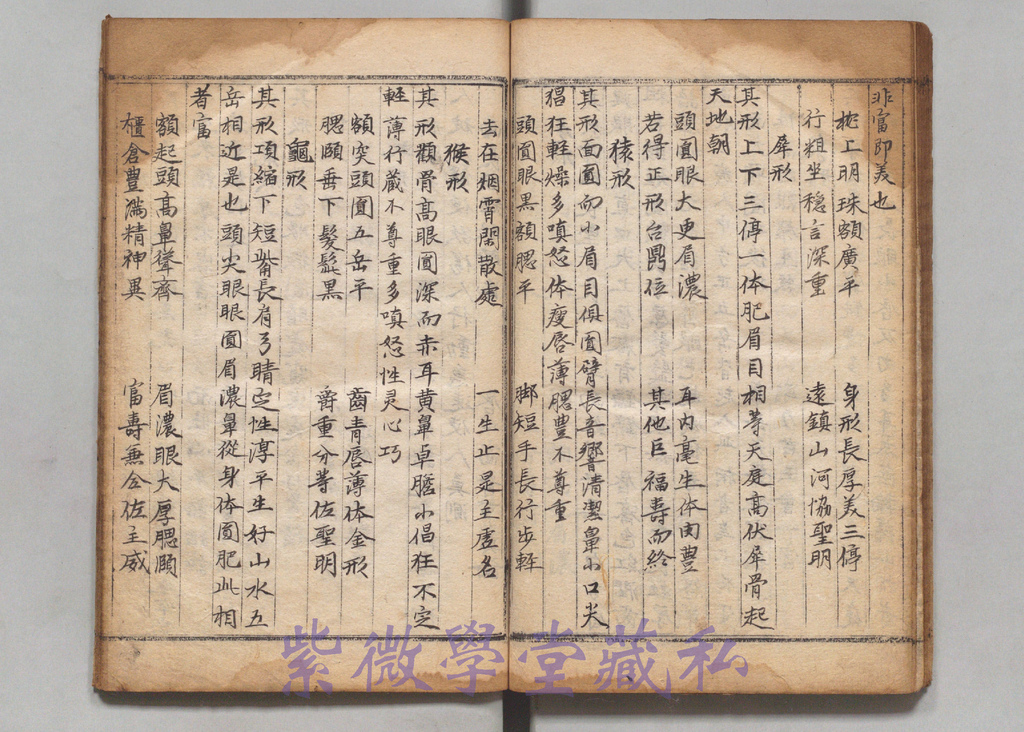 非富即美也
枕上明珠額廣平　身形長厚美三停
行粗坐穩言深重　遠鎮山河協聖明
犀形
其形上下三停一体肥眉目相等天庭高伏犀骨起
天地朝
頭圓眼大更眉濃　耳內毫生体肉豊
若得正形台鼎位　其他巨福壽而終
猿形
其形面圓而小眉目俱圓臂長音響清潔鼻小口尖
猖狂軽燥多嗔怒体瘦唇薄腮豊不尊重
頭圓眼黒額腮平　脚短手長行步軽
去在烟霄閑散處　一生止是主虛名
猴形
其形顴骨高眼圓深而赤耳黄鼻卓膽小倡狂不定
軽薄行藏不尊重多嗔怒性灵心巧
額突頭圓五岳平　齒青唇薄体金形
腮頤垂下髮髭黒　爵重分茅佐聖明
龜形
其形項縮下短觜長肩弓睛定性淳平生好山水五
岳相近是也頭尖眼眼圓眉濃鼻從身体圓肥此相
者富
額起頭高鼻聳齊　眉濃眼大厚腮頤
櫃倉豊滿精神異　富壽兼全佐主威
紫微學堂藏私